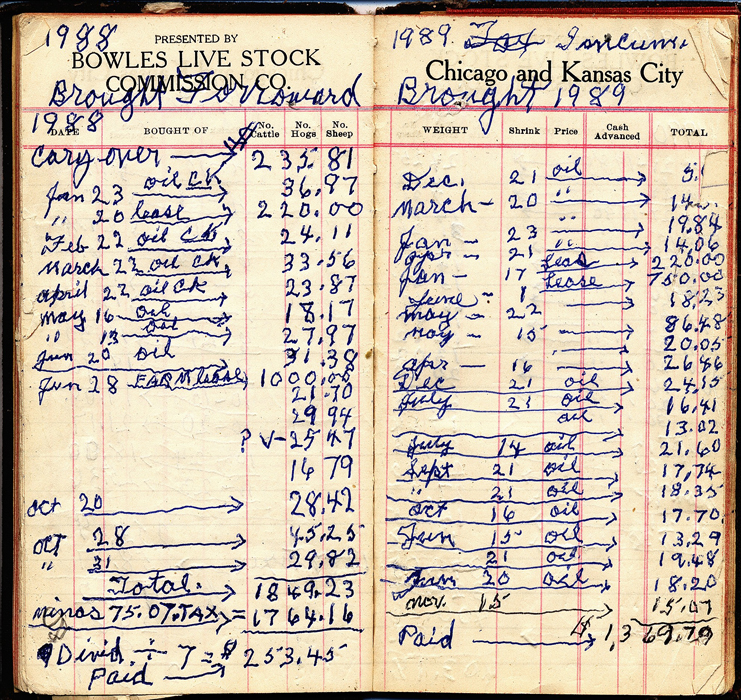 1988
PRESENTED BY
BOWLES LIVE STOCK
COMMISSION CO.
Brought Forrward
1988
DATE BOUGHT OF No. Cattle No. Hogs No. Sheep
Cary over 235.81
Jan 23 oil CK 36.97
" 20 lease 220.00
Feb 22 oil CK 24.11
March 22 oil CK 33.56
april 22 oil CK 23.87
may 16 oil 18.17
" 13 oil 27.97
Jun 20 oil 31.38
Jun 28 FARM lease 1000.00
21.70
29 94
? V-25 47
16 79
oct 20 28.42
oct 28 45.25
" 31 29.82
Total. 1849.23
minas 75.07.TAX = 1764.16
Divid. ÷ 7 = $ 253.45
Paid
1989 Tax Incume
Chicago and Kansas City
Brought 1989
WEIGHT Shrink Price Cash Advanced TOTAL
Dec. 21 oil
March - 20 "
Jan - 23 " 19.84
apr - 21 " 14.06
Jan - 17 Lease 220.00
June " 1 Lease 750.00
may - 22 18.23
may - 15 86.48
20.05
apr - 16 26.46
Dec 21 oil 24.15
July 21 oil 16.41
oil 13.02
July 14 oil 21.60
Sept 21 oil 17.74
" 21 oil 18.35
oct 16 oil 17.70
Jun 15 oil 13.29
21 oil 19.48
Jun 20 oil 18.20
nov. 15 15.07
Paid $1,369.79